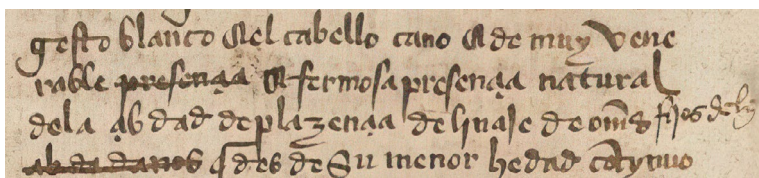 gesto blanco & el cabello cano & de muy vene
rable presençia & fermosa presençia natural
dela çibdad de plazençia de linaje de oms fijos de
çibdadanos q des de su menor hedad contynuo